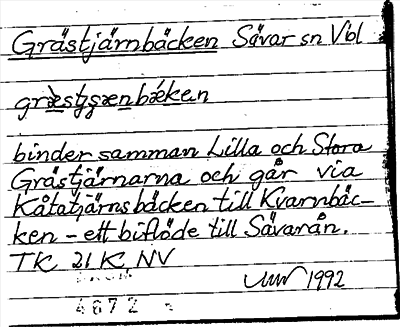 Grästjärnbäcken Sävar sn Vbl
græ̀stjæ̣nbǽkan
binder samman Lilla och Stora
Grästjärnarna och går via
Kåtatjärnsbäcken till Kvarnbäc-
ken – ett biflöde till Sävarån.
TK 21 K NV
1992
4672